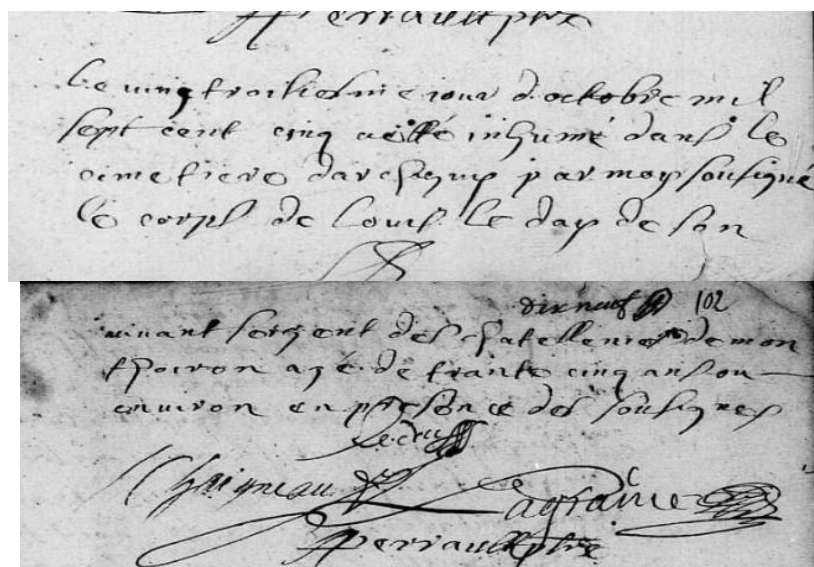 Perrault pbre
Le vingtroisiesme jour doctobre mil
sept cent cinq a esté inhumé dans le
cimetiere darchigny par moy sousigné
le corps de Louis le day de son
dix neuf 102
vivant sergent des chatellenies de mon
thoiron agé de trante cinq ans ou
environ en presence des sousignes
Chaigneau Lagrange
Perrault pbre